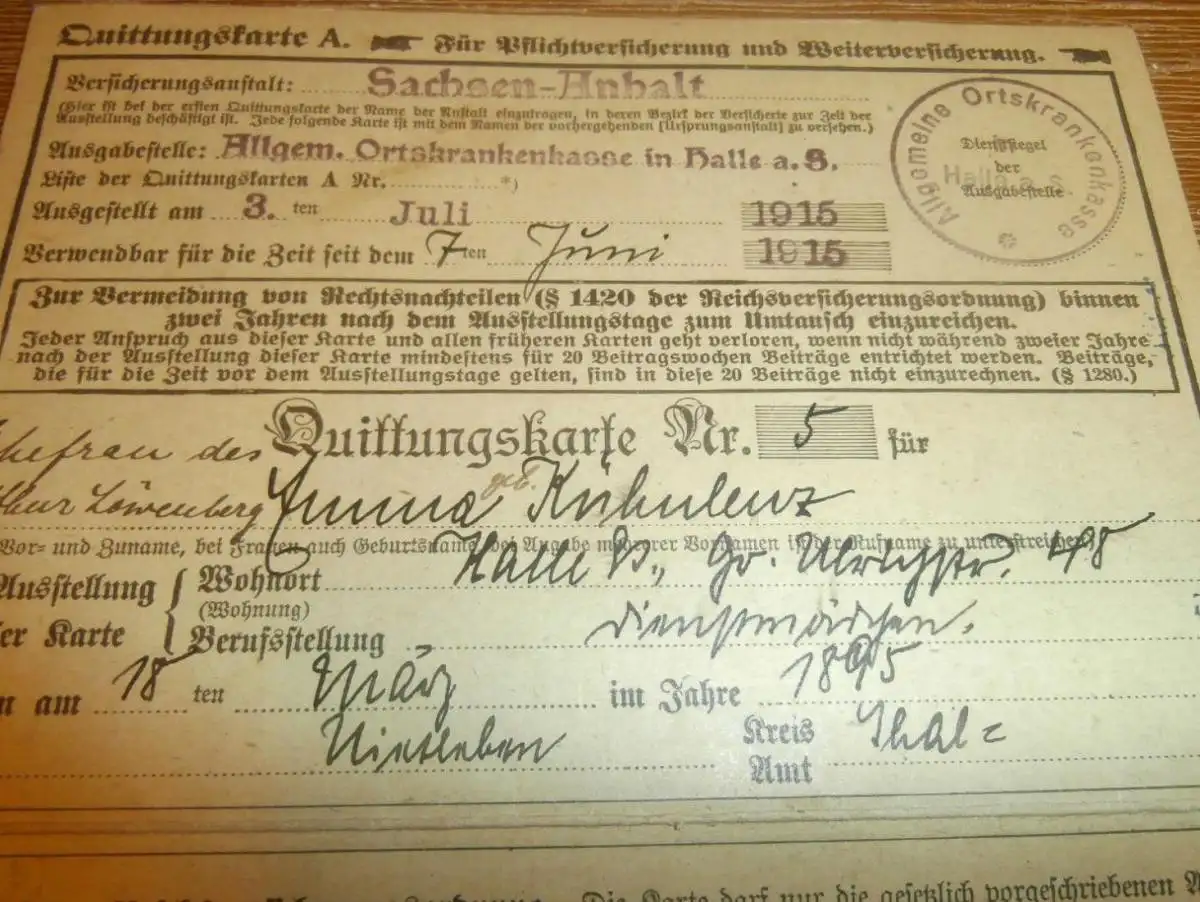 Quittungskarte A. Für Pflichtversicherung und Weiterversicherung.
Versicherungsanstalt: Sachsen-Anhalt
(Hier ist bei der ersten Quittungskarte der Name der Anstalt einzutragen, in deren Bezirk der Versicherte zur Zeit der
Ausstellung beschäftigt ist. Jede folgende Karte ist mit dem Namen der vorhergehenden [Ursprungsanstalt] zu versehen.)
Ausgabestelle: Allgem. Ortskrankenkasse in Halle a. S.
Liste der Quittungskarten A Nr. *)
Ausgestellt am 3. ten Juli 1915
Verwendbar für die Zeit seit dem 7 ten Juni 1915
Allgemeine Ortskrankenkasse
Halle a. S.
Dienstsiegel
der
Ausgabestelle
Zur Vermeidung von Rechtsnachteilen (§ 1420 der Reichsversicherungsordnung) binnen
zwei Jahren nach dem Ausstellungstage zum Umtausch einzureichen.
Jeder Anspruch aus dieser Karte und allen früheren Karten geht verloren, wenn nicht während zweier Jahre
nach der Ausstellung dieser Karte mindestens für 20 Beitragswochen Beiträge entrichtet werden. Beiträge,
die für die Zeit vor dem Ausstellungstage gelten, sind in diese 20 Beiträge nicht einzurechnen. (§ 1280.)
Quittungskarte Nr. 5 für
Ehefrau des
Löwenberg Emma geb. Kühnlenz
Vor- und Zuname, bei Frauen auch Geburtsname, bei Angabe mehrerer Vornamen ist der Rufname zu unterstreichen
Ausstellung Wohnort Halle S., Gr. Ulrichstr. 48
(Wohnung)
der Karte Berufsstellung Dienstmädchen.
am 18 ten März im Jahre 1895
Nietleben Kreis Saal=
Amt
Die Karte darf nur die gesetzlich vorgeschriebenen